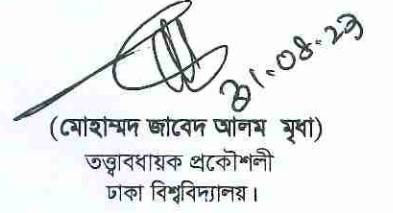 ৩১.০৪.২৩
(মোহাম্মদ জাবেদ আলম মৃধা)
তত্ত্বাবধায়ক প্রকৌশলী
ঢাকা বিশ্ববিদ্যালয়।